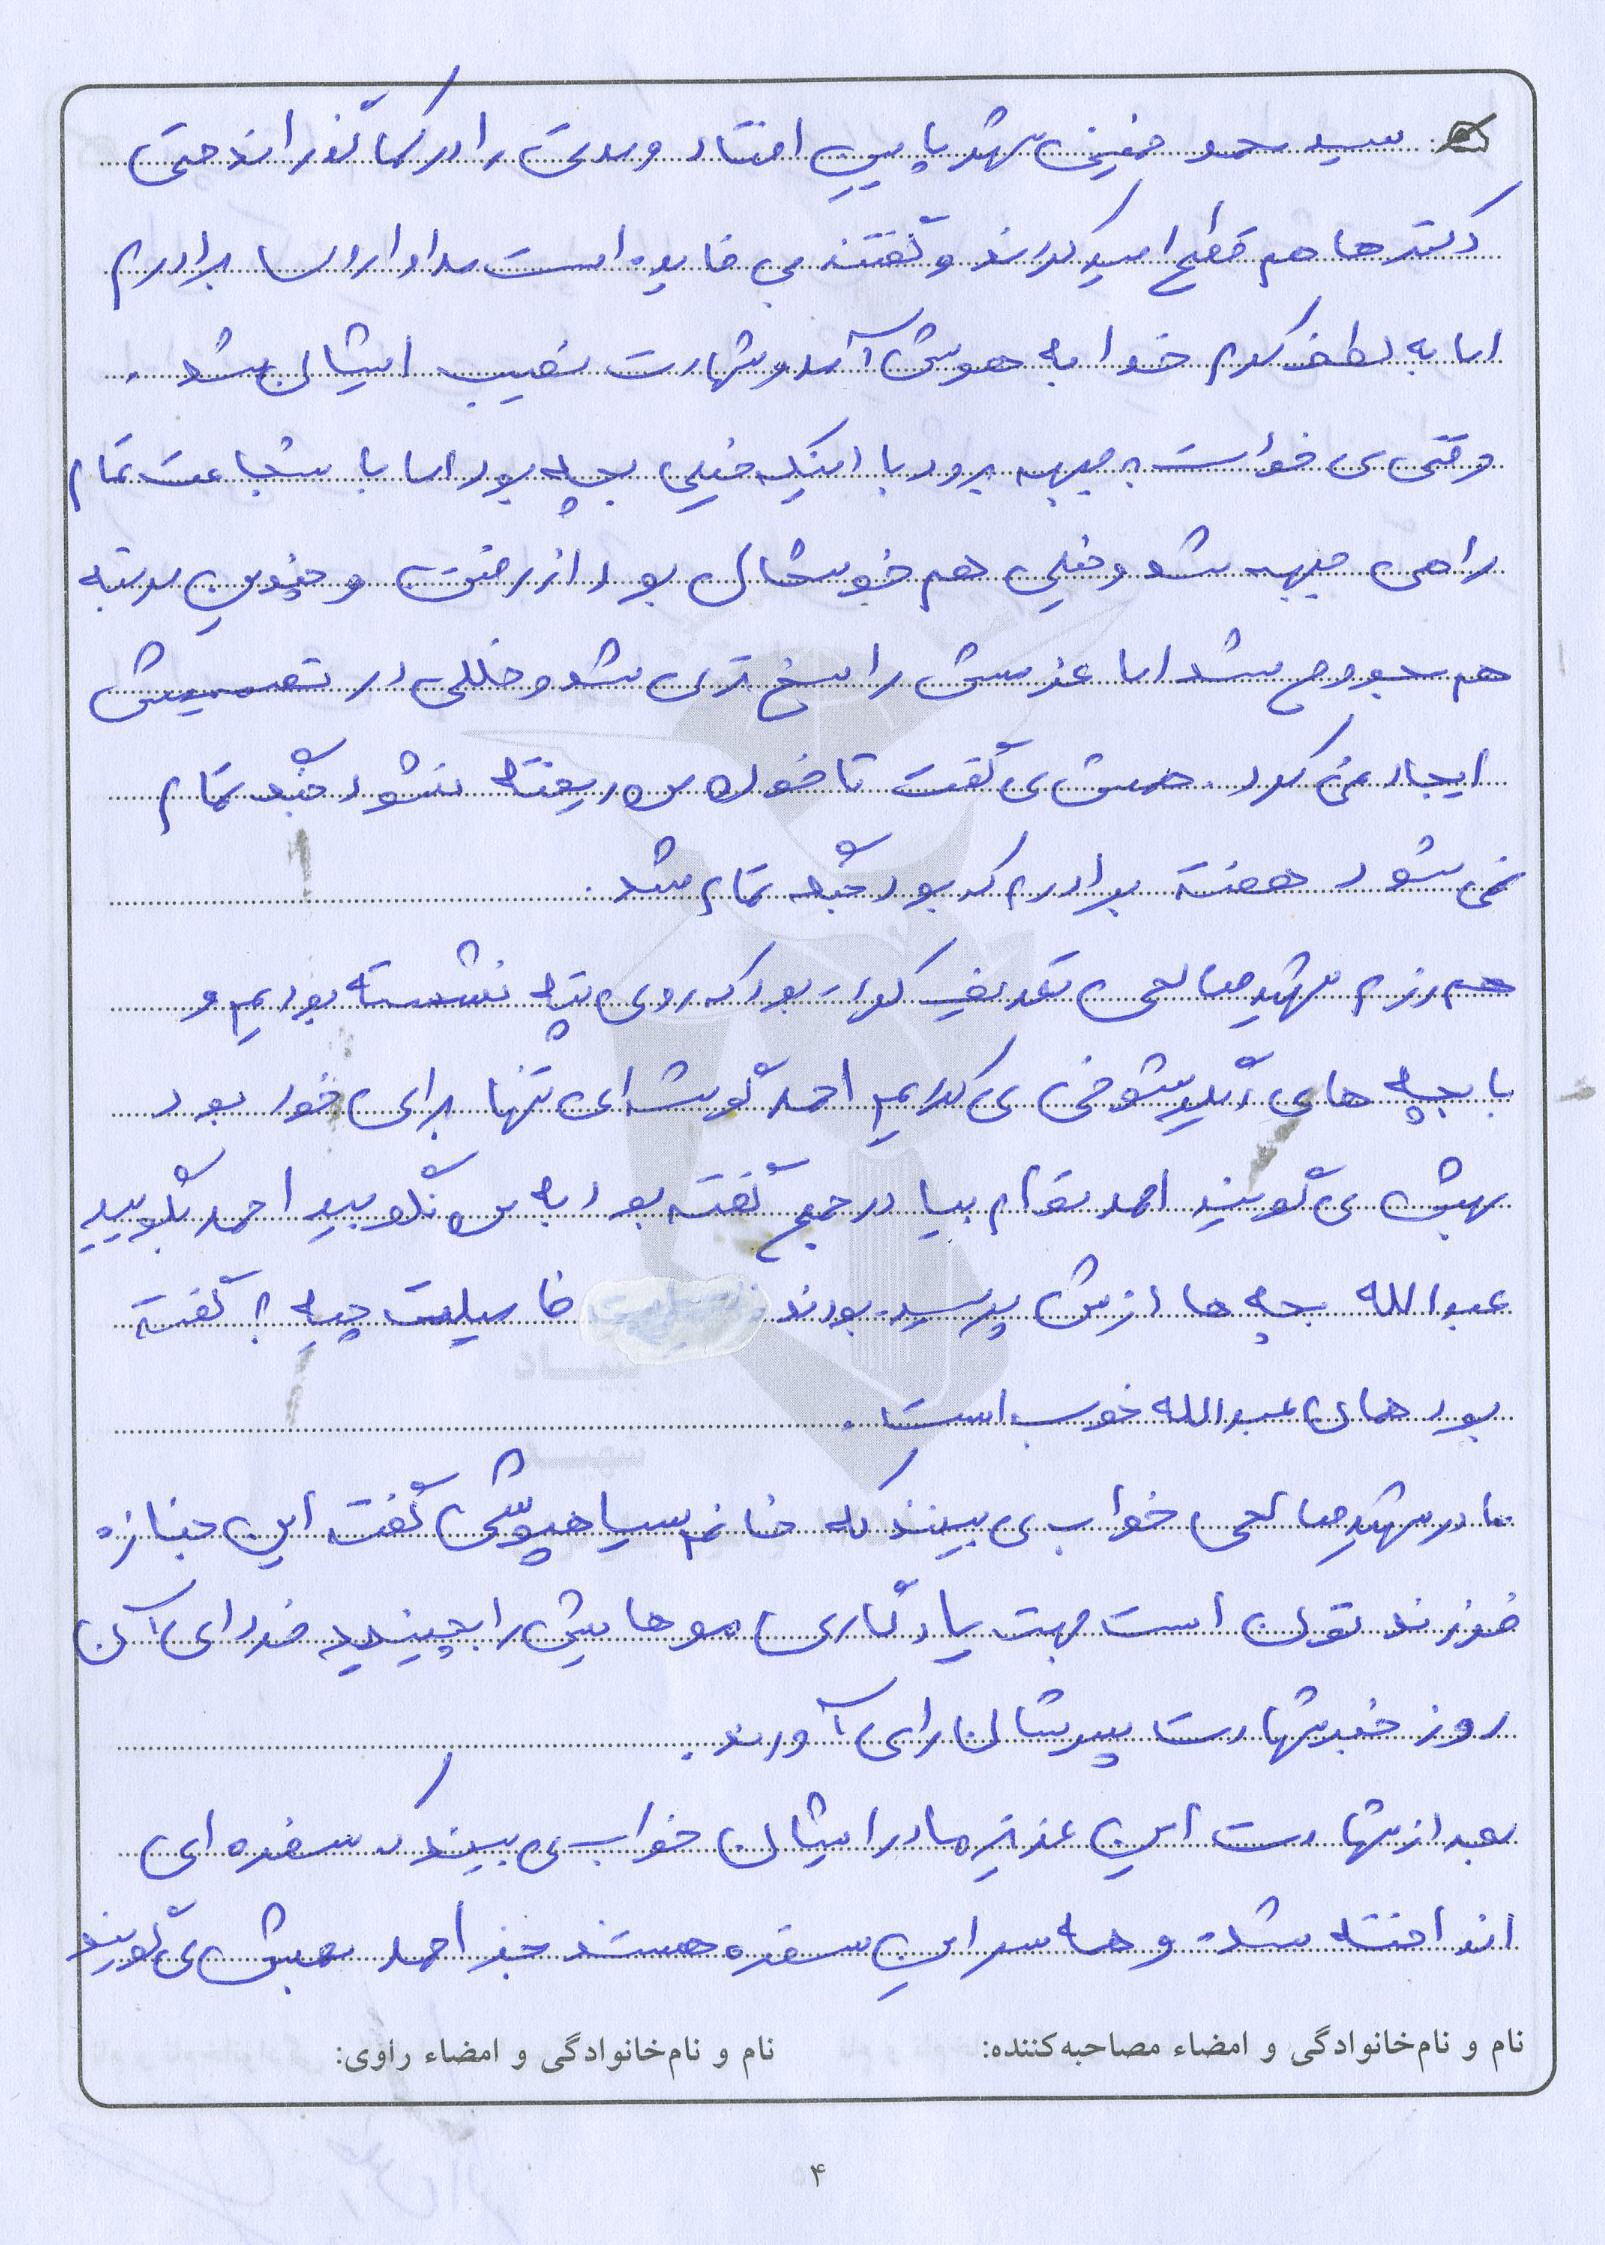 سپید جمد خفیف شهد پایین افتاد و مدتی را در کما گذراند حتی
دکترها هم قطع امید کردند و گفتند بی فایده است مداوا اما برادرم
اما به لطف کرم خدا به هوش آمد و شهادت نصیب ایشان شد.
وقتی می خواست به جبهه برود با اینکه خیلی بچه بود اما با شجاعت تمام
راهی جبهه شد و خیلی هم خوشحال بود از رفتن و چندین مرتبه
هم مجروح شد اما عزمش راسخ تر می شد و خللی در تصمیمش
ایجاد نمی کرد. همش می گفت تا خون من ریخته نشود جنگ تمام
نمی شود هفته برادرم که بود جنگ تمام شد.
هم رزم شهید صالحی تعریف کرده بود که روی تپه نشسته بودیم و
با بچه های دیگر شوخی می کردیم احمد گوشه ای تنها برای خود بود
بهش می گویند احمد تو هم بیا در جمع گفته بود به من نگویید احمد بگویید
عبدالله بچه ها ازش پرسیده بودند فامیلیت چیه؟ گفته
بود همان عبدالله خوب است.
مادر شهید صالحی خواب می بینند که خانم سیاهپوشی گفته این جنازه
فرزند توان است جهت یادگاری موهایش را بچینید فردای آن
روز خبر شهادت پسرشان را می آورند.
بعد از شهادت این عزیز مادر ایشان خواب می بیند که سفره ای
انداخته شده و همه سر این سفره هستند جز احمد بهش می گویند
نام و نام‌خانوادگی و امضاء مصاحبه‌کننده: نام و نام‌خانوادگی و امضاء راوی:
۴